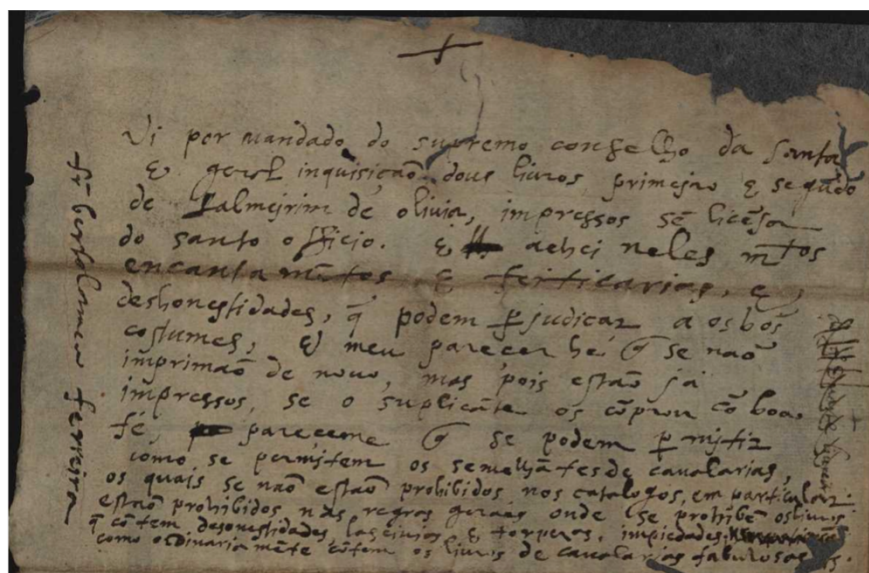 Vi per mandado do supremo conselho da santa
E geral inquisição dous livros primejro E segũdo
de Palmejrim de olivia, impressos sẽ licẽsa
do santo officio. E achei neles mtos
encantamẽtos E feiticarias, E
deshonestidades, q̃ podem perjudicar a os bõs
costumes, E meu parecer he q̃ se naõ
imprimaõ de novo, mas pois estaõ ja
impressos, se o suplicãte os cõprou cõ boa
fé, pareceme q̃ se podem permitir
como se permitem os semelhãtes de cavalarias,
os quais se naõ estaõ prohibidos nos catalogos, em particular
estaõ prohibidos nas regras geraes onde se prohibẽ os livros
q̃ cõtem desonestidades, lascivias E torpezas, impiedades
como ordinariamẽte cõtem os livros de cavalarias fabulosas
fr bertolameu ferreira